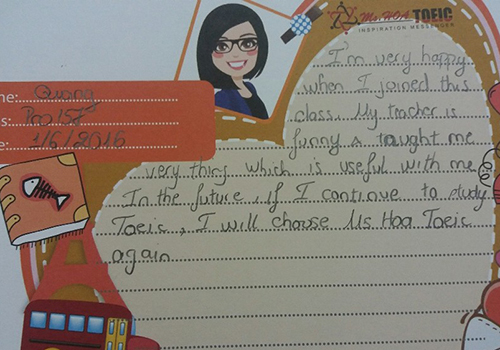 Ms HOA TOEIC
INSPIRATION MESSENGER
me: Quang
s:
e: 1/6/2016
I'm very happy
when I joined this
class. My teacher is
funny & taught me
very thing which is useful with me
In the future, if I continue to study
Toeic, I will choose Ms Hoa Toeic
again